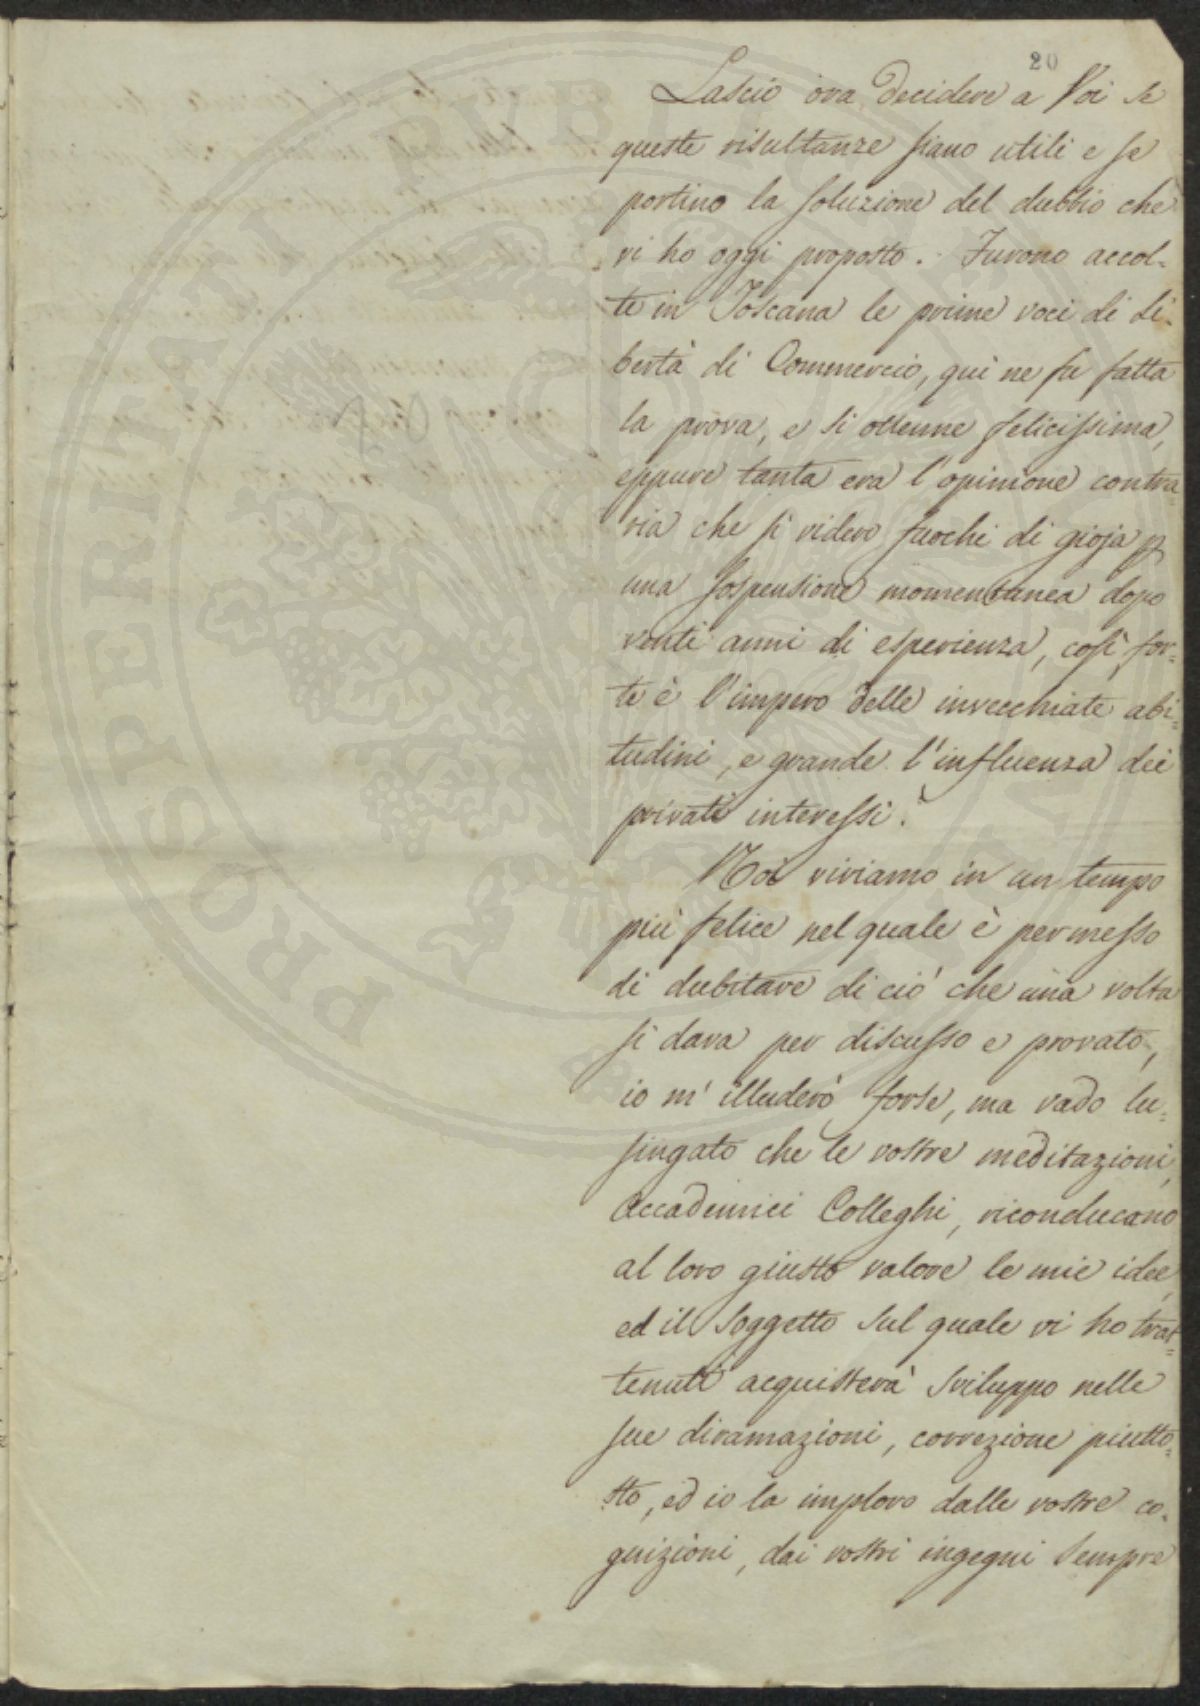 20
Lascio ora decidere a Voi se
queste risultanze siano utili e se
portino la soluzione del dubbio che
vi ho oggi proposto. Furono accol-
te in Toscana le prime voci di li-
bertà di Commercio, qui ne fu fatta
la prova, e si ottenne felicissima,
eppure tanta era l'opinione contra-
ria che si videro fuochi di gioja p
una sospensione momentanea dopo
venti anni di esperienza, così for-
te è l'impero delle invecchiate abi-
tudini, e grande l'influenza dei
privati interessi.
Noi viviamo in un tempo
più felice nel quale è permesso
di dubitare di ciò che una volta
si dava per discusso e provato,
io m'illuderò forse, ma vado lu-
singato che le vostre meditazioni,
Accademici Colleghi, riconducano
al loro giusto valore le mie idee,
ed il soggetto sul quale vi ho trat-
tenuti acquisterà sviluppo nelle
sue diramazioni, correzione piutto-
sto, ed io la imploro dalle vostre co-
gnizioni, dai vostri ingegni sempre
PROSPERITATI PUBLICAE AUGENDAE